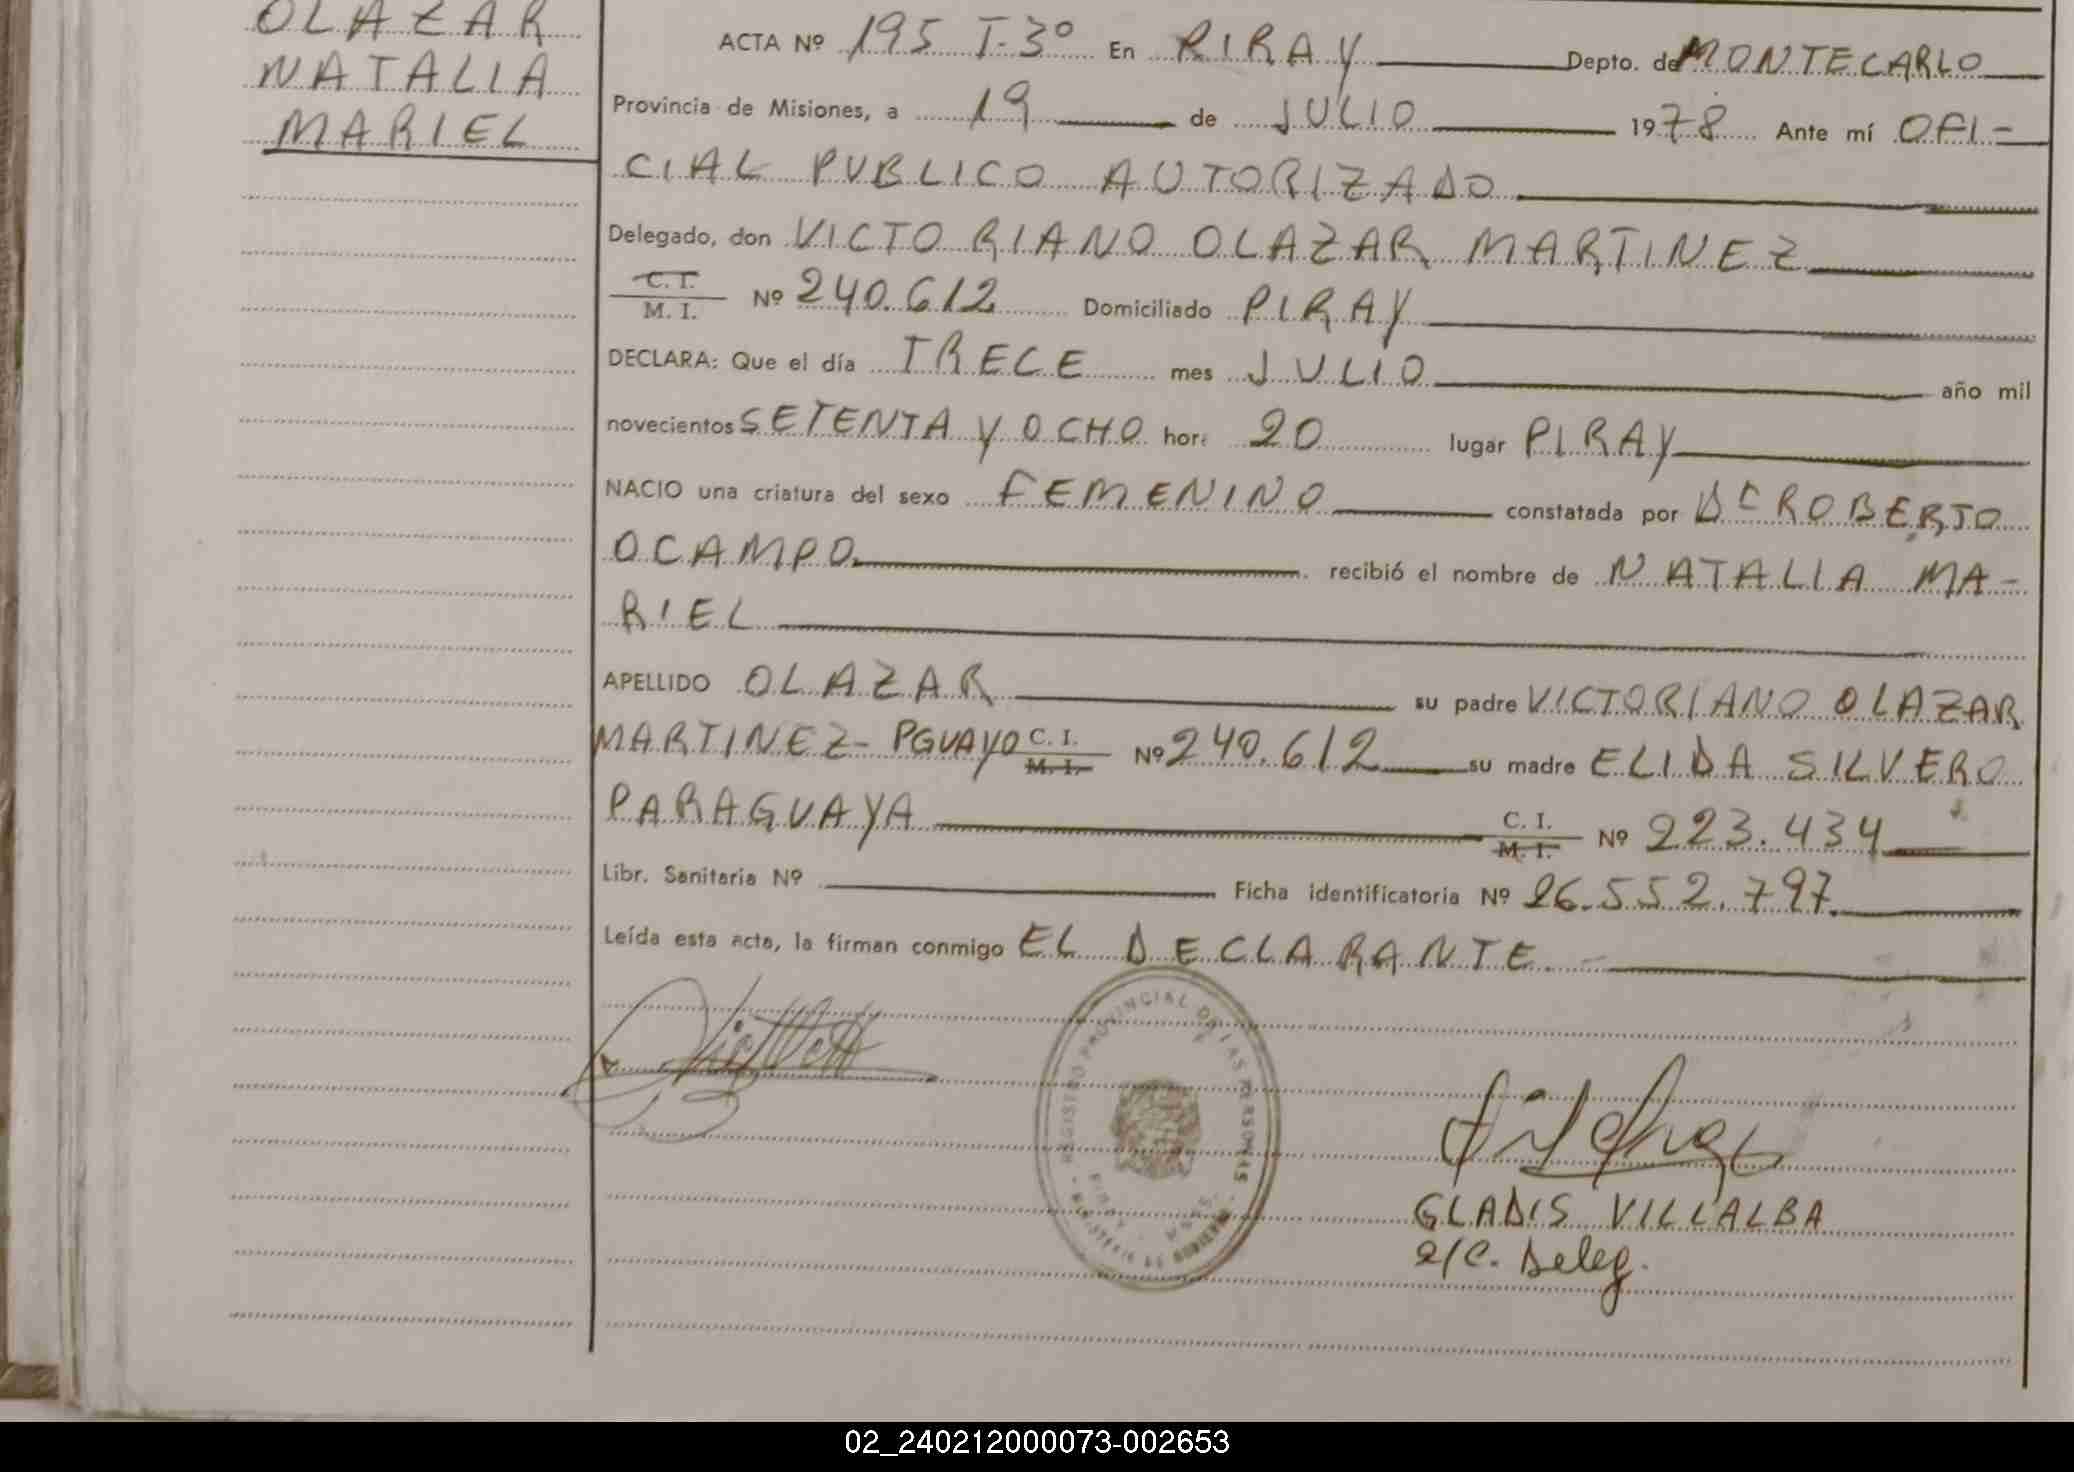 OLAZAR
NATALIA
MARIEL
ACTA Nº 195 T-3º En PIRAY Depto. de MONTECARLO
Provincia de Misiones, a 19 de JULIO 1978 Ante mí OFI-
CIAL PUBLICO AUTORIZADO
Delegado, don VICTORIANO OLAZAR MARTINEZ
C.I.
M. I. Nº 240.612 Domiciliado PIRAY
DECLARA: Que el día TRECE mes JULIO año mil
novecientos SETENTA Y OCHO hora 20 lugar PIRAY
NACIO una criatura del sexo FEMENINO constatada por Dr ROBERTO
OCAMPO recibió el nombre de NATALIA MA-
RIEL
APELLIDO OLAZAR su padre VICTORIANO OLAZAR
MARTINEZ- PGUAYO C. I.
M. I. Nº 240.612 su madre ELIDA SILVERO
PARAGUAYA C. I.
M. I. Nº 223.434
Libr. Sanitaria Nº Ficha identificatoria Nº 26.552.797
Leída esta acta, la firman conmigo EL DECLARANTE.-
REGISTRO PROVINCIAL DE LAS PERSONAS
PIRAY - MNES.
MINISTERIO DE GOBIERNO
GLADIS VILLALBA
e/c. Deleg.
02_240212000073-002653